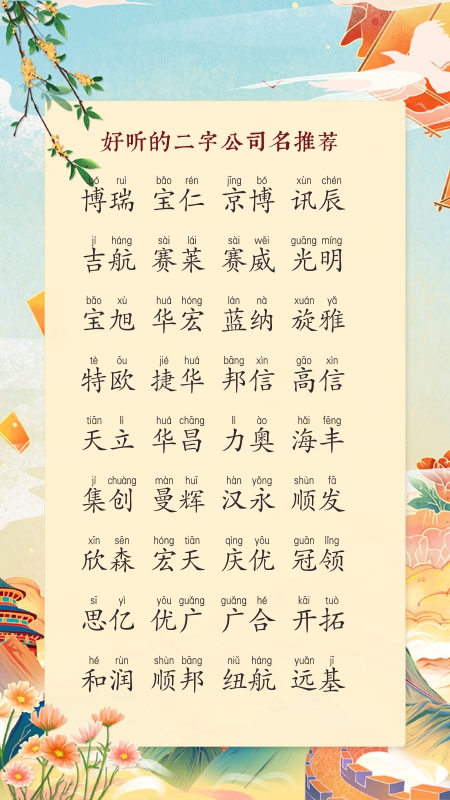 好听的二字公司名推荐
bó ruì bǎo rén jīng bó xùn chén
博瑞 宝仁 京博 讯辰
jí háng sài lái sài wēi guāng míng
吉航 赛莱 赛威 光明
bǎo xù huá hóng lán nà xuán yǎ
宝旭 华宏 蓝纳 旋雅
tè ōu jié huá bāng xìn gāo xìn
特欧 捷华 邦信 高信
tiān lì huá chāng lì ào hǎi fēng
天立 华昌 力奥 海丰
jí chuàng màn huī hàn yǒng shùn fā
集创 曼辉 汉永 顺发
xīn sēn hóng tiān qìng yōu guān lǐng
欣森 宏天 庆优 冠领
sī yì yōu guǎng guǎng hé kāi tuò
思亿 优广 广合 开拓
hé rùn shùn bāng niǔ háng yuǎn jī
和润 顺邦 纽航 远基